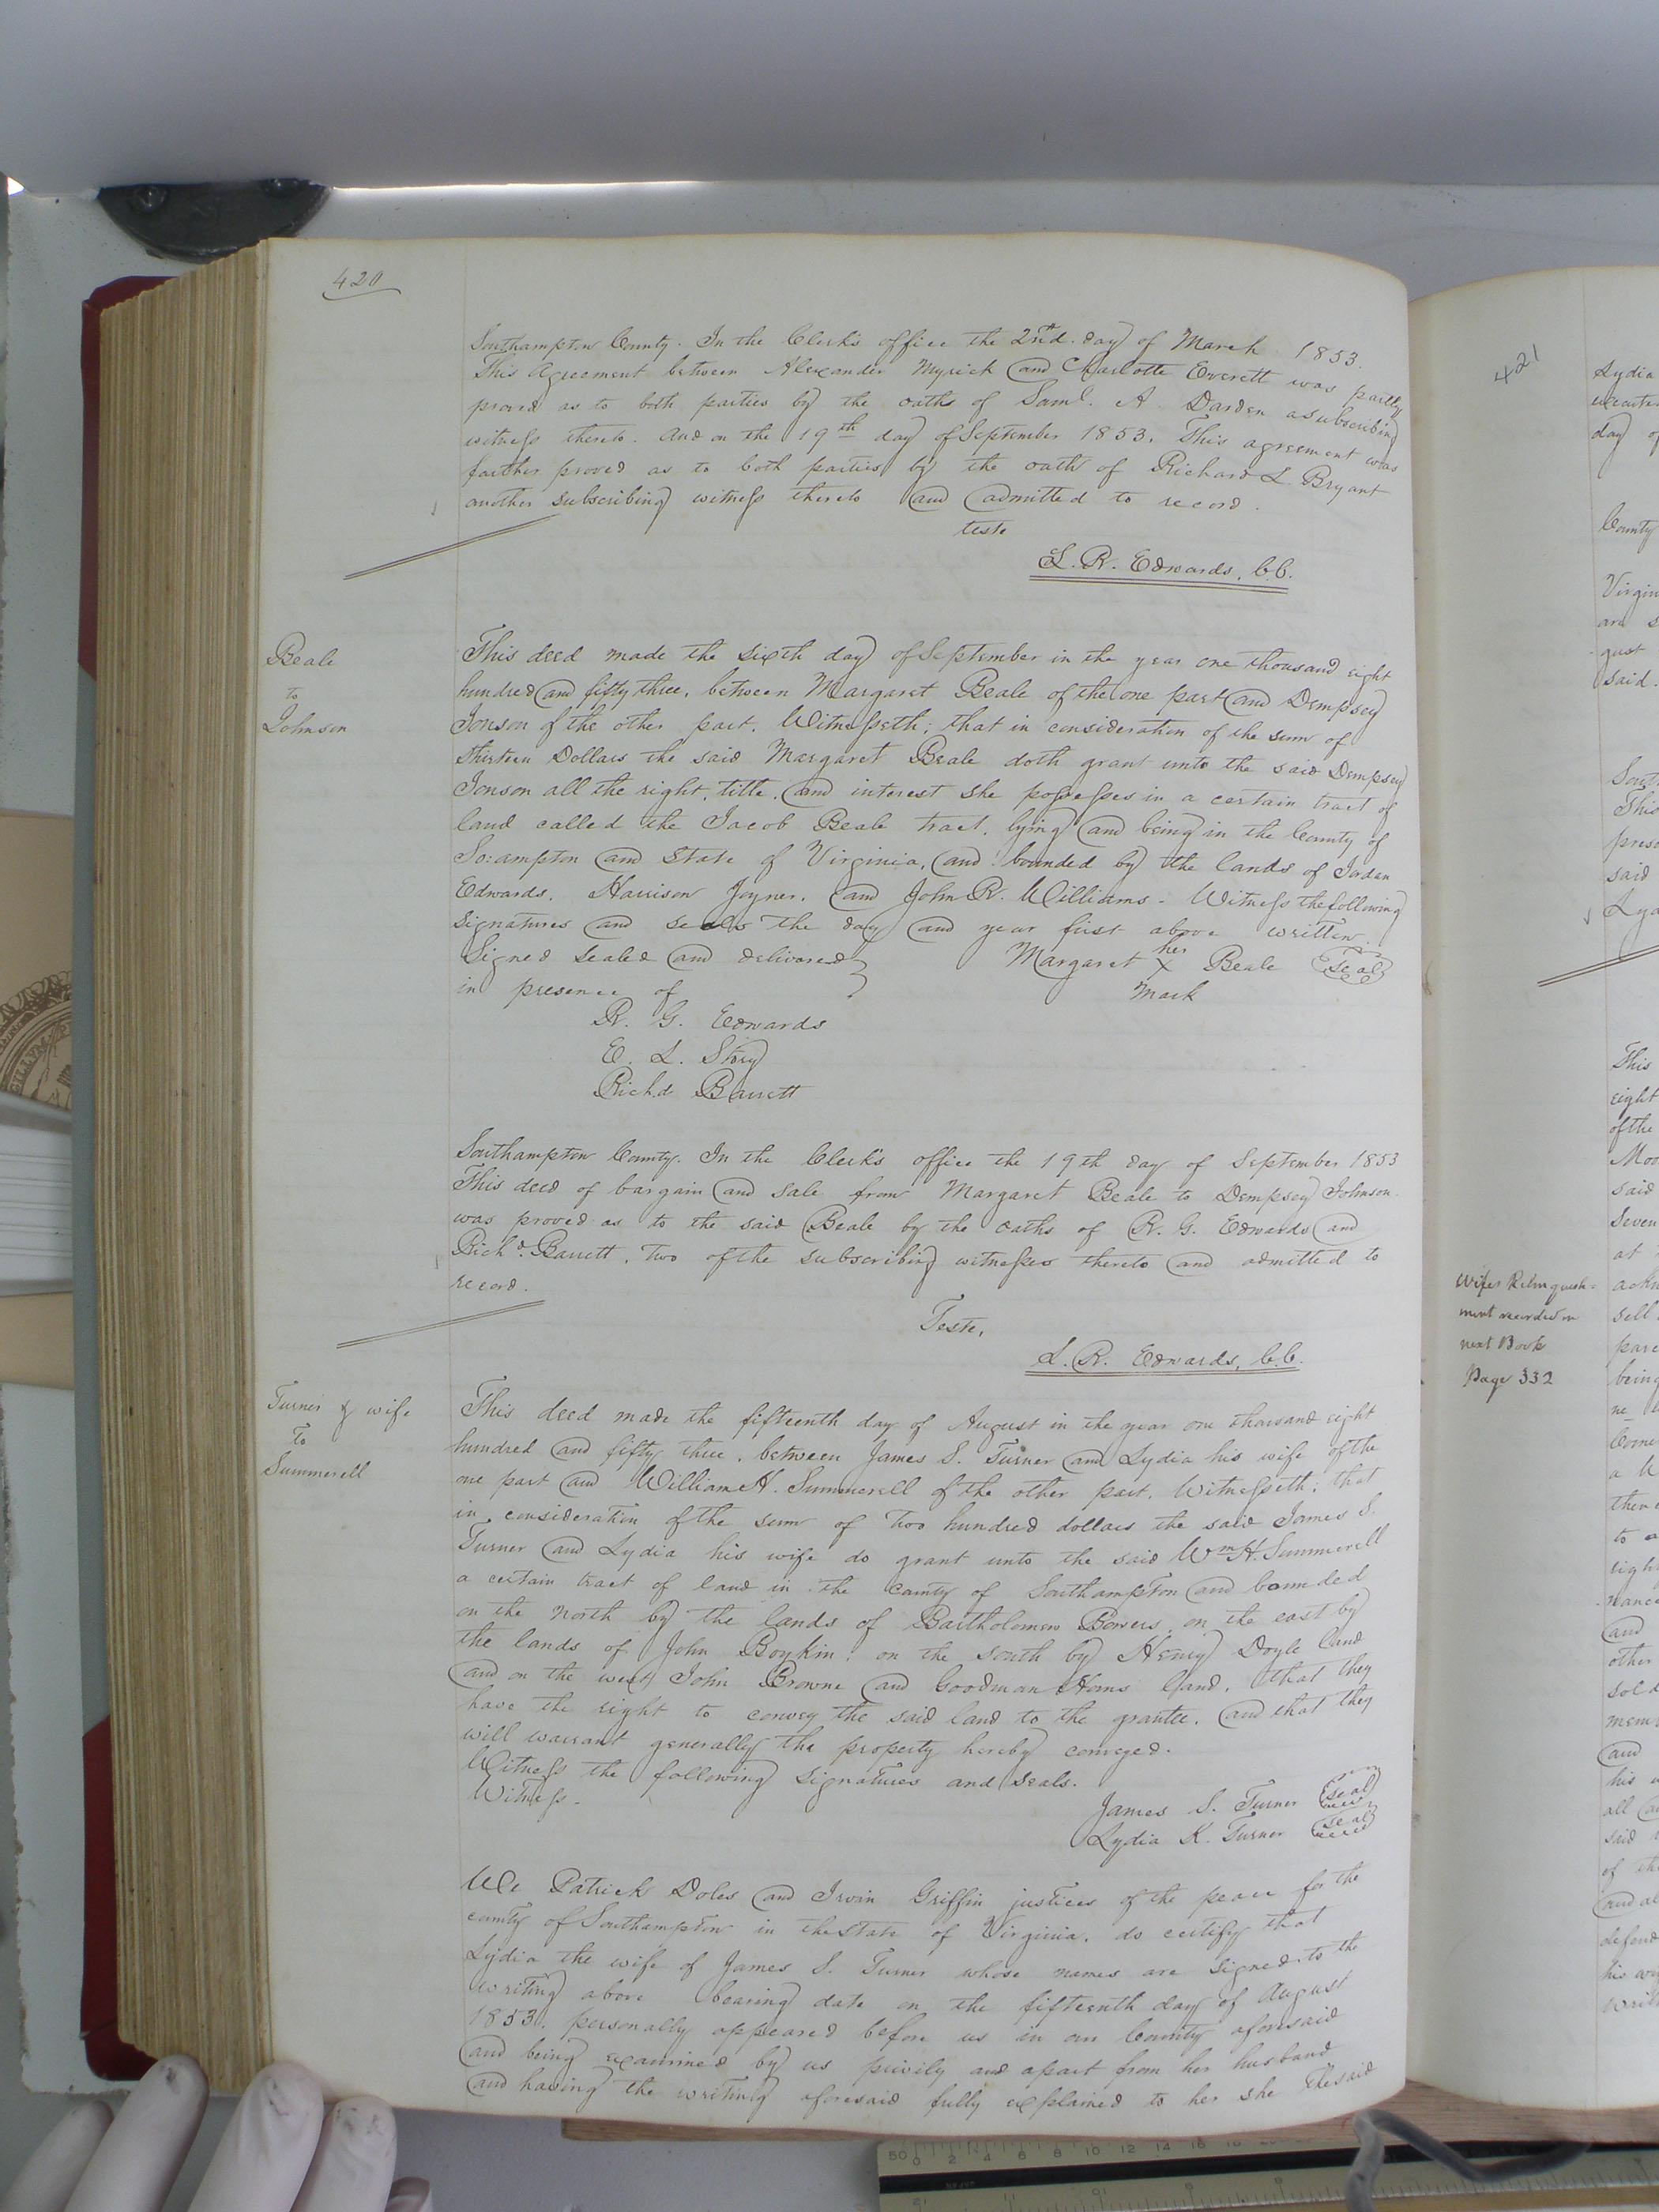 420
Southampton County. In the Clerk's office the 2nd. day of March 1853.
This Agreement between Alexander Myrick and Charlotte Everett was partly
proved as to both parties by the oaths of Saml. A Darden a subscribing
witness thereto. And on the 19th day of September 1853. This agreement was
further proved as to both parties by the oath of Richard L. Bryant
another subscribing witness thereto and admitted to record.
teste
L. R. Edwards, C.C.
Beale
to
Johnson
This deed made the sixth day of September in the year one thousand eight
hundred and fifty three, between Margaret Beale of the one part and Dempsey
Jonson of the other part. Witnesseth; that in consideration of the sum of
thirteen Dollars the said Margaret Beale doth grant unto the said Dempsey
Jonson all the right, title, and interest she possesses in a certain tract of
land called the Jacob Beale tract, lying and being in the County of
So:ampton and State of Virginia, and bounded by the lands of Jordan
Edwards, Harrison Joyner, and John R. Williams - Witness the following
signatures and seals the day and year first above written.
Signed Sealed and delivered
in presence of
her
Margaret X Beale Seal
mark
R. G. Edwards
E. L. Story
Richd Barrett
Southampton County. In the Clerk's office the 19th day of September 1853
This deed of bargain and sale from Margaret Beale to Dempsey Johnson
was proved as to the said Beale by the oaths of R. G. Edwards and
Richd. Barrett, two of the subscribing witnesses thereto and admitted to
record.
Teste,
L. R. Edwards, C.C.
Turner & wife
To
Summerell
This deed made the fifteenth day of August in the year one thousand eight
hundred and fifty three, between James S. Turner and Lydia his wife of the
one part and William H. Summerell of the other part. Witnesseth; that
in consideration of the sum of two hundred dollars the said James S.
Turner and Lydia his wife do grant unto the said Wm H. Summerell
a certain tract of land in the county of Southampton and bounded
on the North by the lands of Bartholomew Bowers, on the east by
the lands of John Boykin, on the south by Henry Doyle land
and on the west John Browne and Goodman land, that they
have the right to convey the said land to the grantee, and that they
will warrant generally the property hereby conveyed.
Witness the following signatures and seals.
Witness.
James S. Turner seal
Lydia K. Turner seal
We Patrick Doles and Irvin Griffin justices of the peace for the
county of Southampton in the State of Virginia, do certify that
Lydia the wife of James S. Turner whose names are signed to the
writing above bearing date on the fifteenth day of August
1853, personally appeared before us in our County aforesaid
and being examined by us privily and apart from her husband
and having the writing aforesaid fully explained to her she the said
421
Lydia
day of
County
Virgin
are s
said.
This
said
This
eight
of the
said
Seven
at
Wifes Relinquish-
ment recorded in
next Book
Page 332
sell
being
a W
to a
and
other
sold
and
all
said
of the
defend
50 0 2 4 6 8 10 12 14 16 18